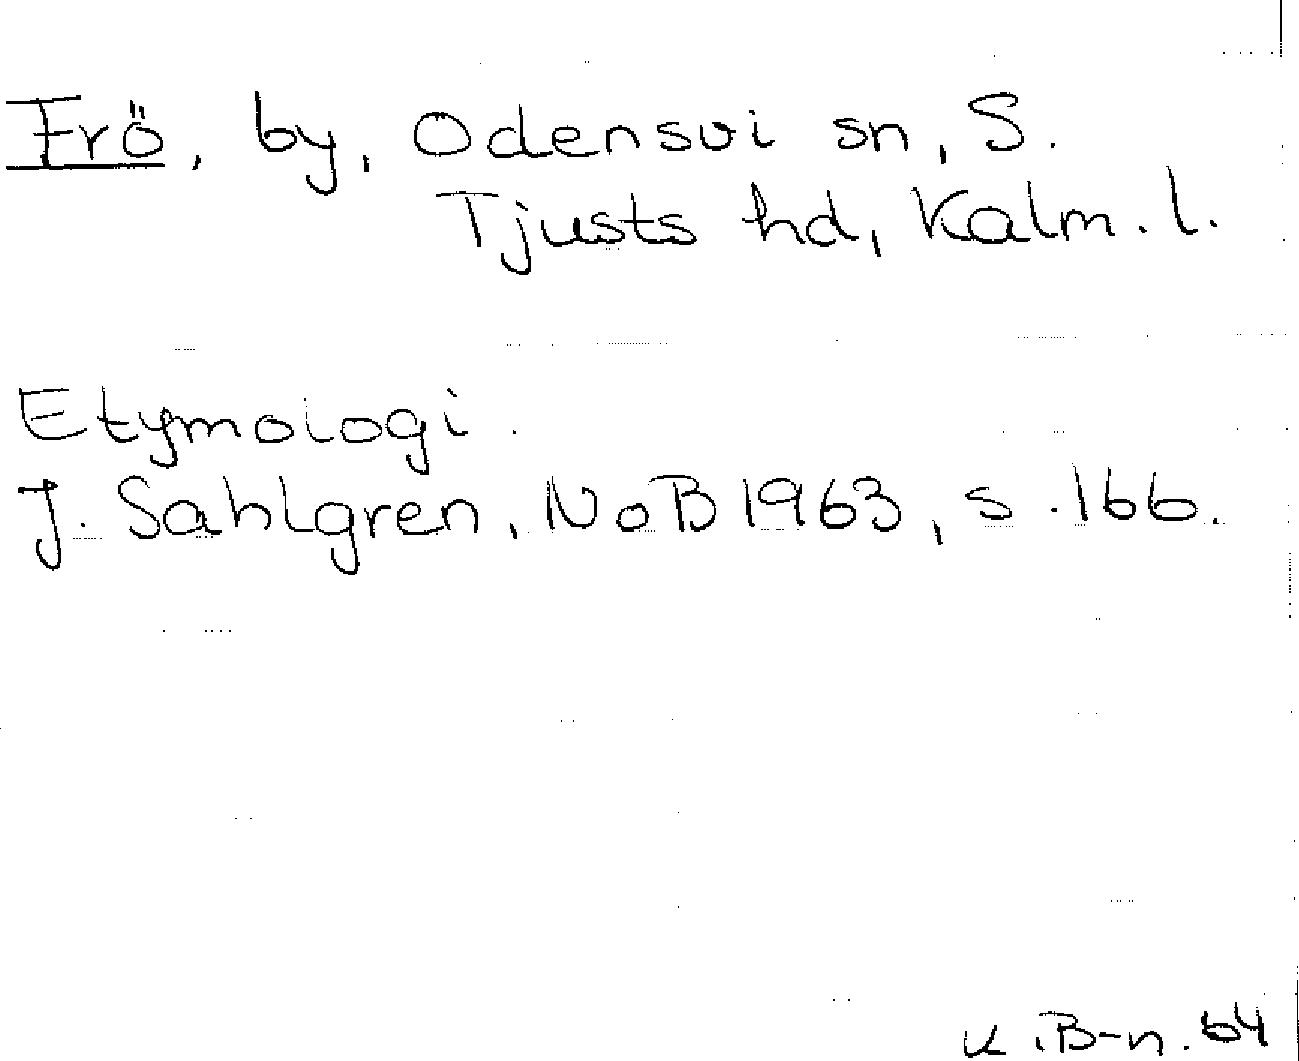 Frö, by, Odensvi sn, S.
Tjusts hd, Kalm. l.
Etymologi.
J. Sahlgren, NoB 1963, s. 166.
K.B-n. 64